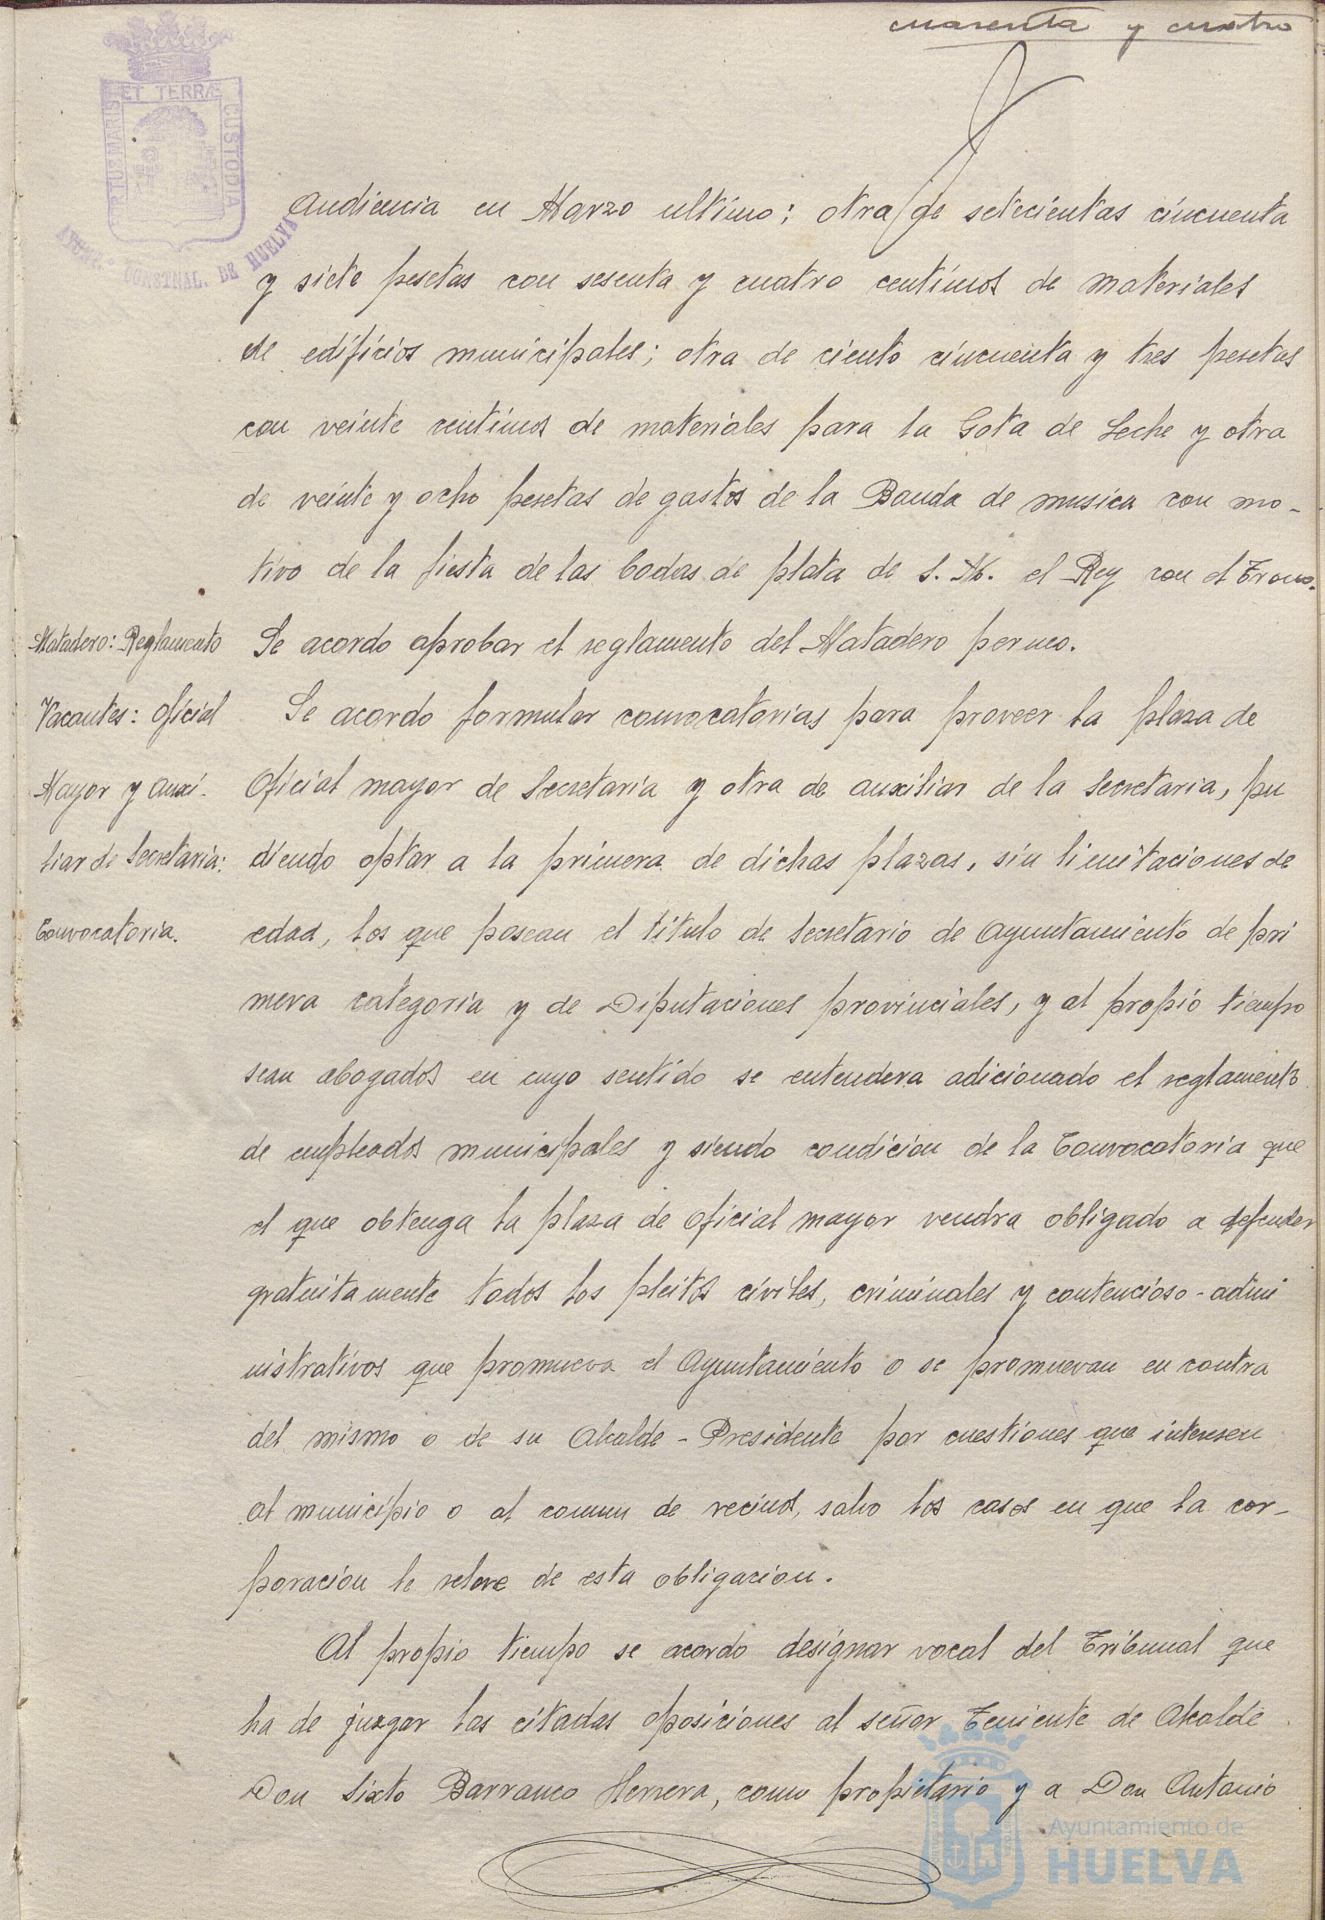 cuarenta y cuatro
PORTUS MARIS ET TERRÆ CUSTODIA
AYUNT. CONSTNAL. DE HUELVA
Audiencia en Marzo ultimo; otra de setecientas cincuenta
y siete pesetas con sesenta y cuatro centimos de materiales
de edificios municipales; otra de ciento cincuenta y tres pesetas
con veinte centimos de materiales para la Gota de Leche y otra
de veinte y ocho pesetas de gastos de la Banda de musica con mo-
tivo de la fiesta de las bodas de plata de S. M. el Rey con el Trono.
Matadero: Reglamento
Se acordo aprobar el reglamento del Matadero permo.
Vacantes: Oficial
Mayor y auxi-
liar de Secretaria:
Convocatoria.
Se acordo formular convocatorias para proveer la plaza de
Oficial mayor de Secretaria y otra de auxiliar de la Secretaria, pu
diendo optar a la primera de dichas plazas, sin limitaciones de
edad, los que posean el titulo de Secretario de Ayuntamiento de pri
mera categoria y de Diputaciones provinciales, y al propio tiempo
sean abogados en cuyo sentido se entendera adicionado el reglamento
de empleados municipales y siendo condicion de la Convocatoria que
el que obtenga la plaza de Oficial mayor vendra obligado a defender
gratuitamente todos los pleitos civiles, criminales y contencioso-admi
nistrativos que promueva el Ayuntamiento o se promuevan en contra
del mismo o de su Alcalde-Presidente por cuestiones que interesen
al municipio o al comun de vecinos, salvo los casos en que la cor-
poracion le releve de esta obligacion.
Al propio tiempo se acordo designar vocal del Tribunal que
ha de juzgar las citadas oposiciones al señor Teniente de Alcalde
Don Sixto Barranco Herrera, como propietario y a Don Antonio
Ayuntamiento de
HUELVA